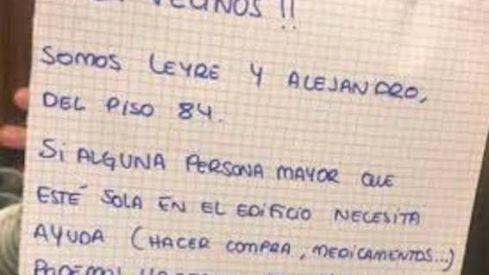 VECINOS !!
SOMOS LEYRE Y ALEJANDRO,
DEL PISO 84.
SI ALGUNA PERSONA MAYOR QUE
ESTÉ SOLA EN EL EDIFICIO NECESITA
AYUDA (HACER COMPRA, MEDICAMENTOS...)
PODEMOS